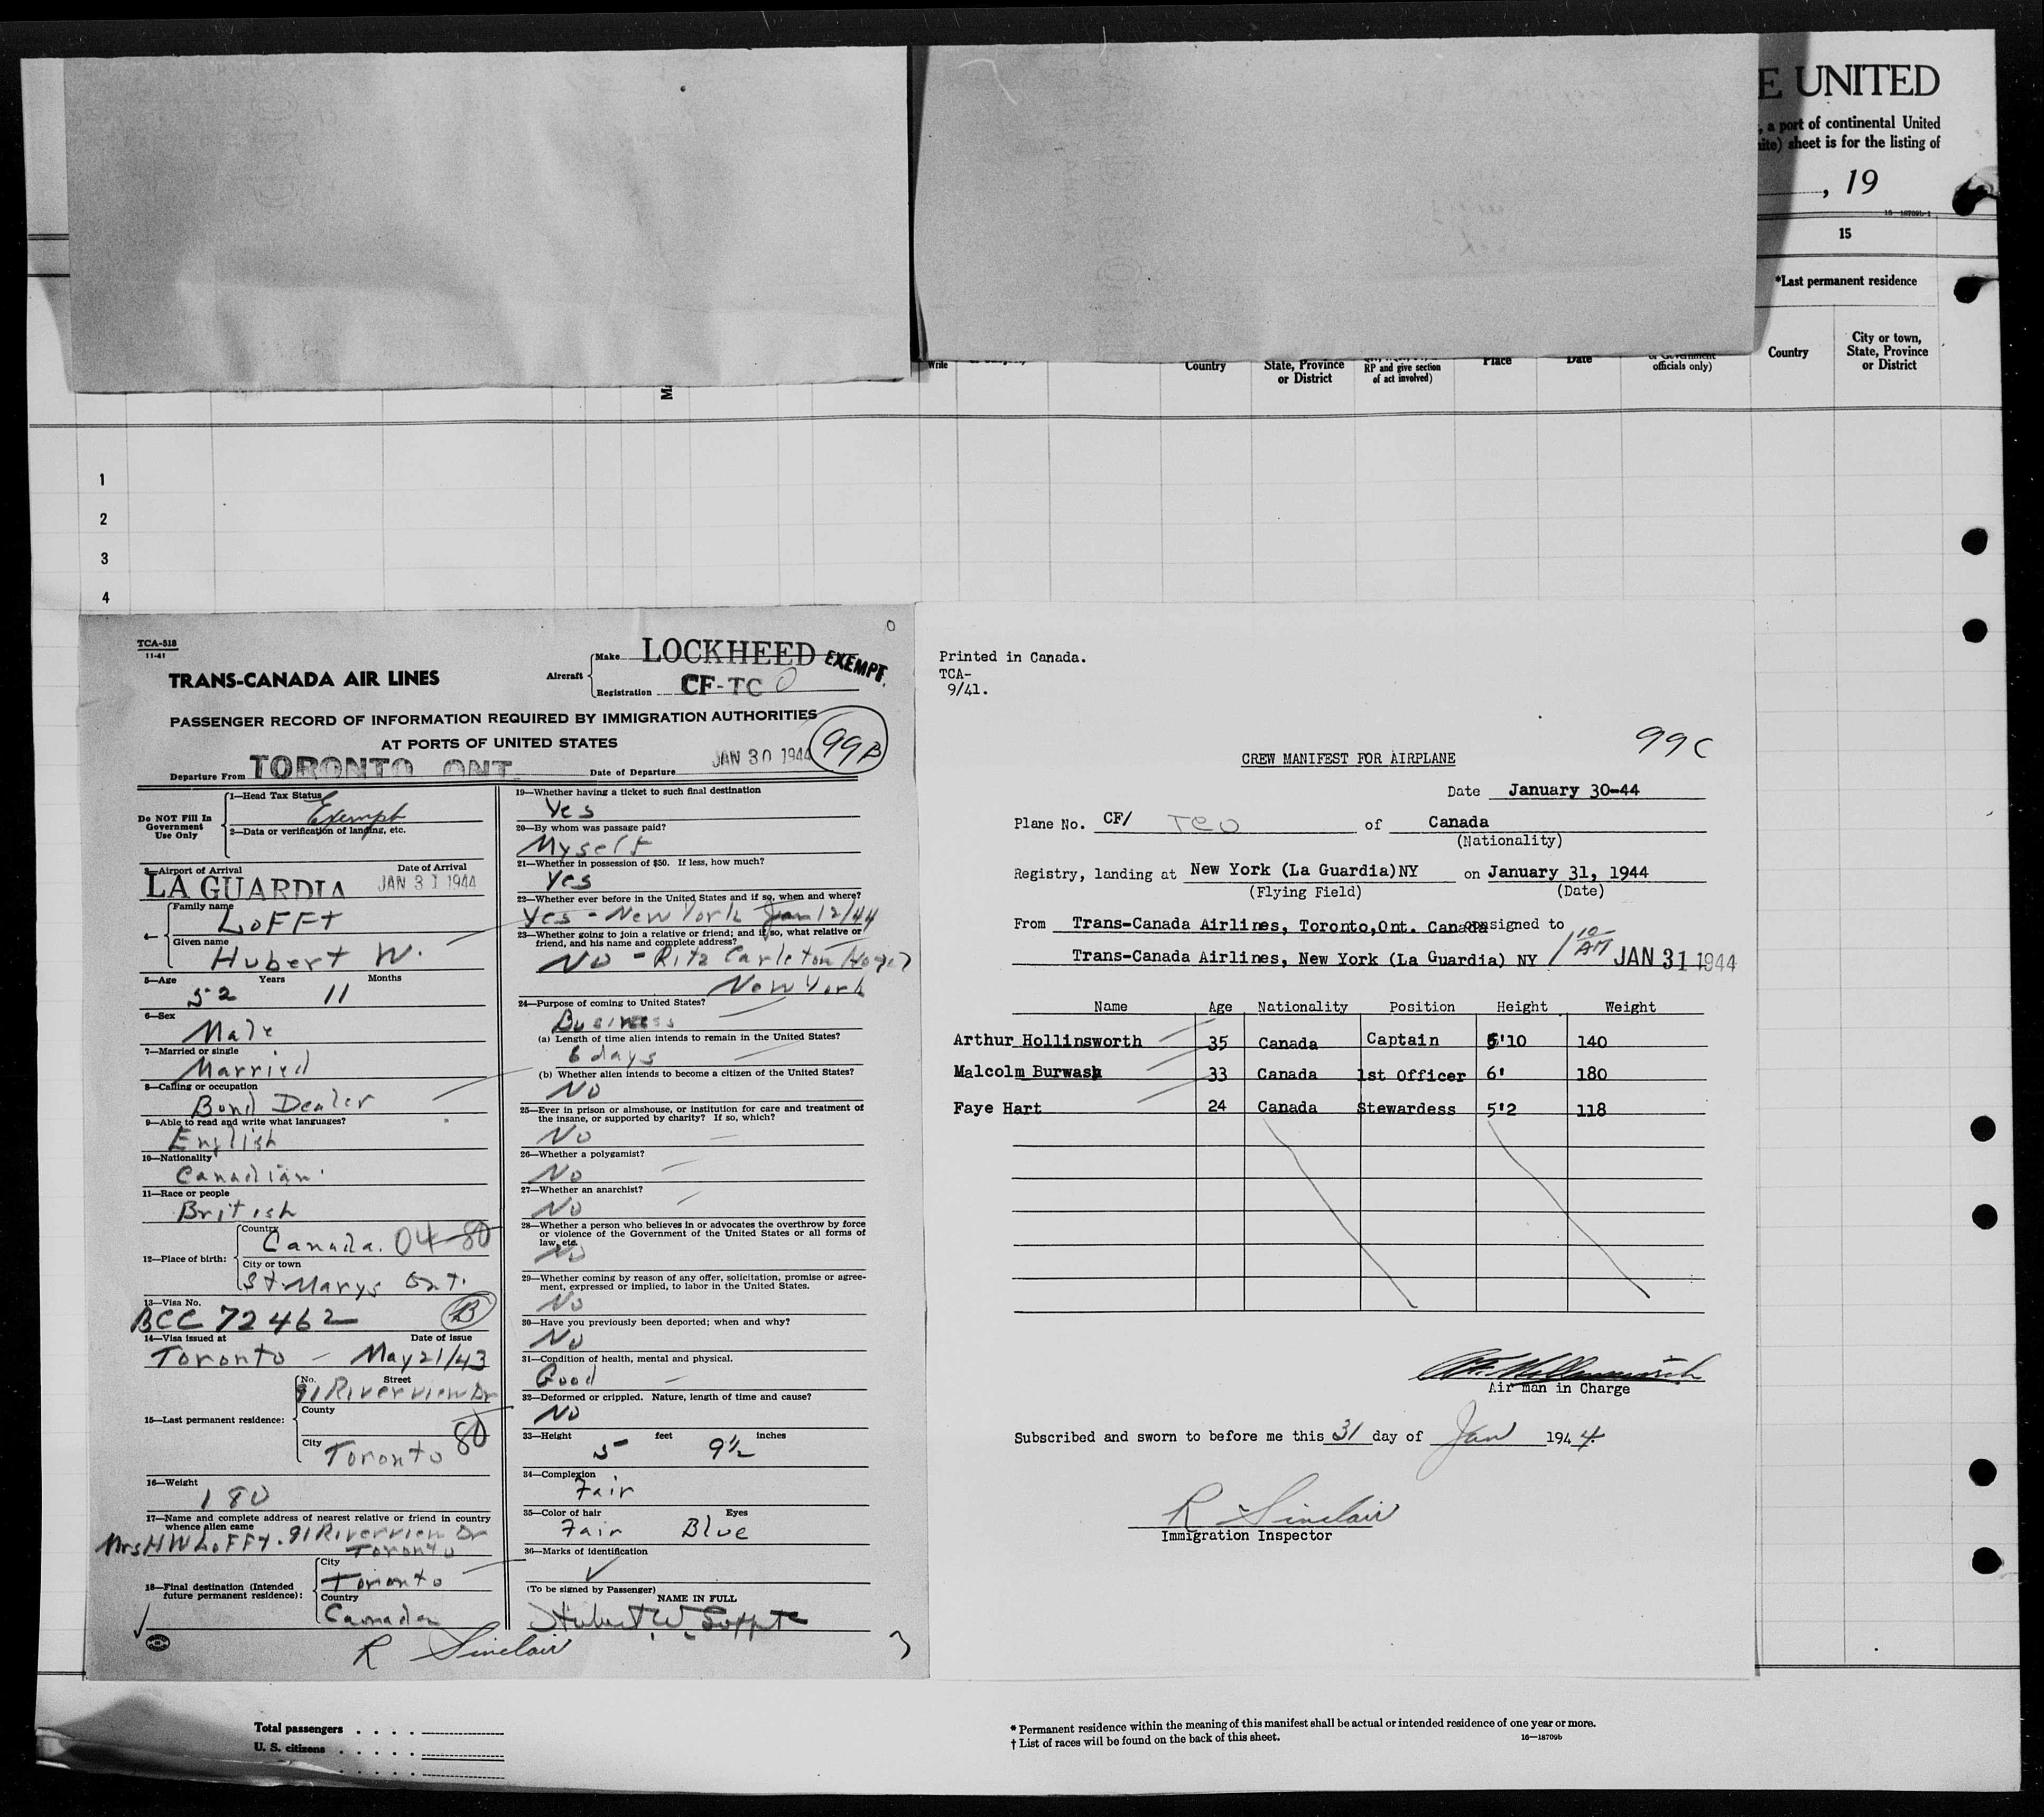 E UNITED
, a port of continental United
ite) sheet is for the listing of
, 19
16—18709b-1
15
*Last permanent residence
Country
City or town,
State, Province
or District
Write
Country
State, Province
or District
RP and give section
of act involved)
Place
Date
or Government
officials only)
1
2
3
4
TCA-518
11-41
TRANS-CANADA AIR LINES
Aircraft
Make LOCKHEED
EXEMPT.
Registration CF-TC O
PASSENGER RECORD OF INFORMATION REQUIRED BY IMMIGRATION AUTHORITIES
AT PORTS OF UNITED STATES
99B
Departure From TORONTO ONT. Date of Departure JAN 30 1944
Do NOT Fill In
Government
Use Only
1—Head Tax Status
Exempt
2—Data or verification of landing, etc.
3—Airport of Arrival Date of Arrival
LA GUARDIA JAN 31 1944
4— Family name
LoFFt
Given name
Hubert W.
5—Age Years Months
52 11
6—Sex
Male
7—Married or single
Married
8—Calling or occupation
Bond Dealer
9—Able to read and write what languages?
English
10—Nationality
Canadian
11—Race or people
British
12—Place of birth:
Country
Canada. 04-80
City or town
St. Marys Ont.
13—Visa No.
BCC 72462 B
14—Visa issued at Date of issue
Toronto — May 21/43
15—Last permanent residence:
No. Street
91 Riverview Dr
County
City
Toronto 80
16—Weight
180
17—Name and complete address of nearest relative or friend in country
whence alien came
Mrs H W LoFFt. 91 Riverview Dr
Toronto
18—Final destination (Intended
future permanent residence):
City
Toronto
Country
Canada
R Sinclair
19—Whether having a ticket to such final destination
Yes
20—By whom was passage paid?
Myself
21—Whether in possession of $50. If less, how much?
Yes
22—Whether ever before in the United States and if so, when and where?
Yes - New York Jan 12/44
23—Whether going to join a relative or friend; and if so, what relative or
friend, and his name and complete address?
No - Ritz Carleton Hotel
New York
24—Purpose of coming to United States?
Business
(a) Length of time alien intends to remain in the United States?
6 days
(b) Whether alien intends to become a citizen of the United States?
No
25—Ever in prison or almshouse, or institution for care and treatment of
the insane, or supported by charity? If so, which?
No
26—Whether a polygamist?
No
27—Whether an anarchist?
No
28—Whether a person who believes in or advocates the overthrow by force
or violence of the Government of the United States or all forms of
law, etc.
No
29—Whether coming by reason of any offer, solicitation, promise or agree-
ment, expressed or implied, to labor in the United States.
No
30—Have you previously been deported; when and why?
No
31—Condition of health, mental and physical.
Good
32—Deformed or crippled. Nature, length of time and cause?
No
33—Height feet inches
5 9½
34—Complexion
Fair
35—Color of hair Eyes
Fair Blue
36—Marks of identification
(To be signed by Passenger)
NAME IN FULL
Hubert W. Lofft
3
Printed in Canada.
TCA-
9/41.
99C
CREW MANIFEST FOR AIRPLANE
Date January 30-44
Plane No. CF/ TCO of Canada
(Nationality)
Registry, landing at New York (La Guardia)NY on January 31, 1944
(Flying Field) (Date)
From Trans-Canada Airlines, Toronto,Ont. Canada consigned to
Trans-Canada Airlines, New York (La Guardia) NY 1 10 AM JAN 31 1944
Name Age Nationality Position Height Weight
Arthur Hollinsworth 35 Canada Captain 5'10 140
Malcolm Burwash 33 Canada 1st Officer 6' 180
Faye Hart 24 Canada Stewardess 5'2 118
Air man in Charge
Subscribed and sworn to before me this 31 day of Jan 1944
R Sinclair
Immigration Inspector
Total passengers
U. S. citizens
* Permanent residence within the meaning of this manifest shall be actual or intended residence of one year or more.
† List of races will be found on the back of this sheet.
16—18709b